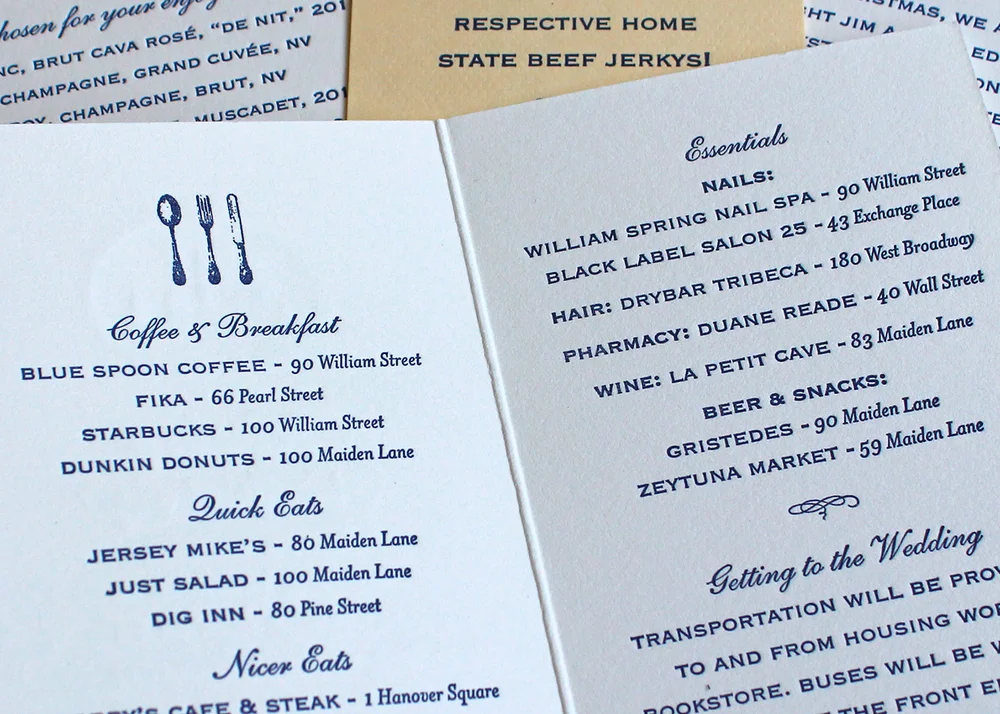 hosen for your enjoy
NC, BRUT CAVA ROSÉ, “DE NIT,” 201
CHAMPAGNE, GRAND CUVÉE, NV
CHAMPAGNE, BRUT, NV
MUSCADET, 201
RESPECTIVE HOME
STATE BEEF JERKYS!
TMAS, WE
HT JIM
Coffee & Breakfast
BLUE SPOON COFFEE - 90 William Street
FIKA - 66 Pearl Street
STARBUCKS - 100 William Street
DUNKIN DONUTS - 100 Maiden Lane
Quick Eats
JERSEY MIKE'S - 80 Maiden Lane
JUST SALAD - 100 Maiden Lane
DIG INN - 80 Pine Street
Nicer Eats
'S CAFE & STEAK - 1 Hanover Square
Essentials
NAILS:
WILLIAM SPRING NAIL SPA - 90 William Street
BLACK LABEL SALON 25 - 43 Exchange Place
HAIR: DRYBAR TRIBECA - 180 West Broadway
PHARMACY: DUANE READE - 40 Wall Street
WINE: LA PETIT CAVE - 83 Maiden Lane
BEER & SNACKS:
GRISTEDES - 90 Maiden Lane
ZEYTUNA MARKET - 59 Maiden Lane
Getting to the Wedding
TRANSPORTATION WILL BE PROV
TO AND FROM HOUSING WOR
BOOKSTORE. BUSES WILL BE
THE FRONT